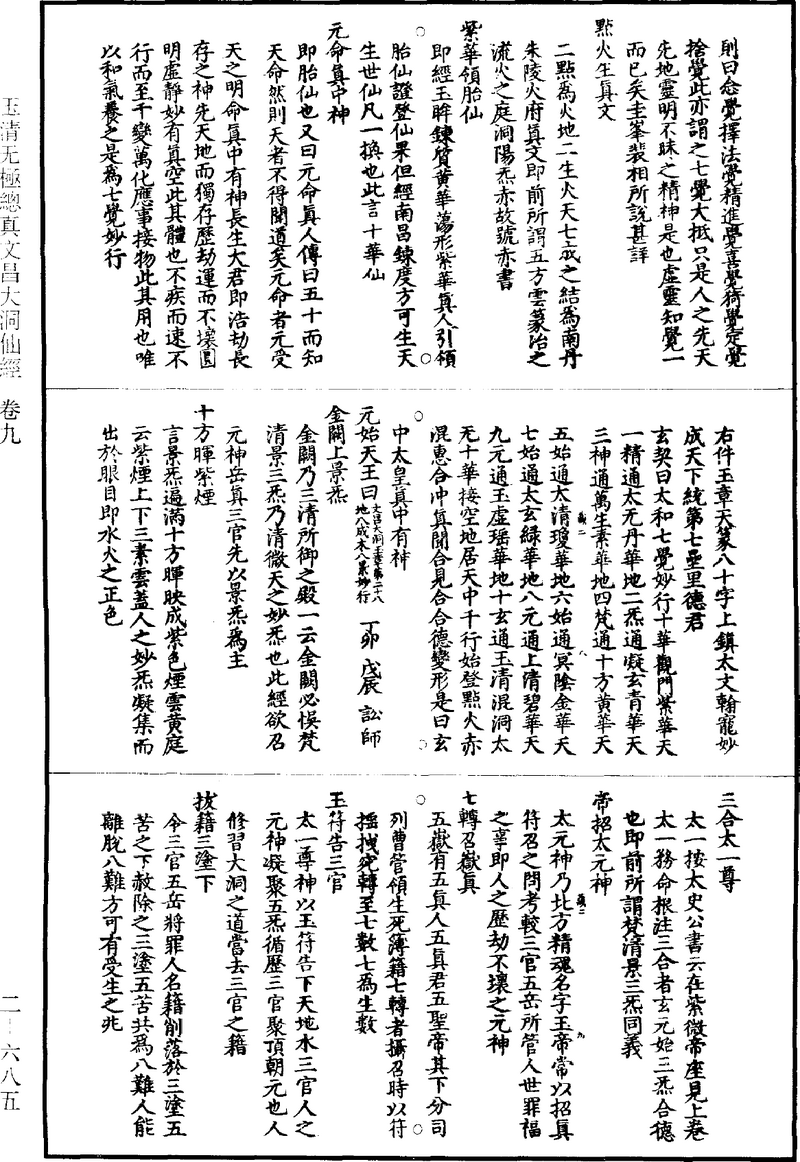 則曰念覺擇法覺精進覺喜覺猗覺定覺
捨覺此亦謂之七覺大抵只是人之先天
先地靈明不昧之精神是也虛靈知覺一
而已矣圭峯裴相所說甚詳
點火生真文
二點為火地二生火天七成之結為南丹
朱陵火府真文即前所謂五方雲篆治之
流火之庭洞陽炁赤故號赤書
紫華領胎仙
即經玉眸鍊質黃華蕩形紫華真人引領
胎仙證登仙果但經南昌鍊度方可生天
生世仙凡一換也此言十華仙
元命真中神
即胎仙也又曰元命真人傳曰五十而知
天命然則天者不得聞道矣元命者元受
天之明命真中有神長生大君即浩劫長
存之神先天地而獨存歷劫運而不壞圓
明虛靜妙有真空此其體也不疾而速不
行而至千變萬化應事接物此其用也唯
以和氣養之是為七覺妙行
右件玉章天篆八十字上鎮太文翰寵妙
成天下統第七壘里德君
玄契曰太和七覺妙行十華觀門紫華天
一精通太无丹華地二炁通凝玄青華天
三神通萬生素華地四梵通十方黃華天
五始通太清瓊華地六始通冥陰金華天
七始通太玄綠華地八元通上清碧華天
九元通玉虛瑤華地十玄通玉清混洞太
无十華接空地居天中千行始登點火赤
混惠合冲真開合見合合德變形是曰玄
中太皇真中有神
元始天王曰 文昌大洞玉章第二十八 地八成木八景妙行 丁卯 戊辰 訟師
金闕上景炁
金闕乃三清所御之殿一云金闕必悞梵
清景三炁乃清微天之妙炁也此經欲召
元神岳真三官先以景炁為主
十方暉紫煙
言景炁遍滿十方暉映成紫色煙雲黃庭
云紫煙上下三素雲蓋人之妙炁凝集而
出於眼目即水火之正色
三合太一尊
太一按太史公書云在紫微帝座見上卷
太一務命根注三合者玄元始三炁合德
也即前所謂梵清景三炁同義
帝招太元神
太元神乃北方精魂名字玉帝常以招真
符召之問考較三官五岳所管人世罪福
之辜即人之歷劫不壞之元神
七轉召嶽真
五嶽有五真人五真君五聖帝其下分司
列曹管領生死簿籍七轉者攝召時以符
搖拽宛轉至七數七為生數
玉符告三官
太一尊神以玉符告下天地水三官人之
元神凝聚五炁循歷三官聚頂朝元也人
修習大洞之道當去三官之籍
拔籍三塗下
令三官五岳將罪人名籍削落於三塗五
苦之下赦除之三塗五苦共為八難人能
離脫八難方可有受生之兆
玉清无極總真文昌大洞仙經 卷九
二—六八五